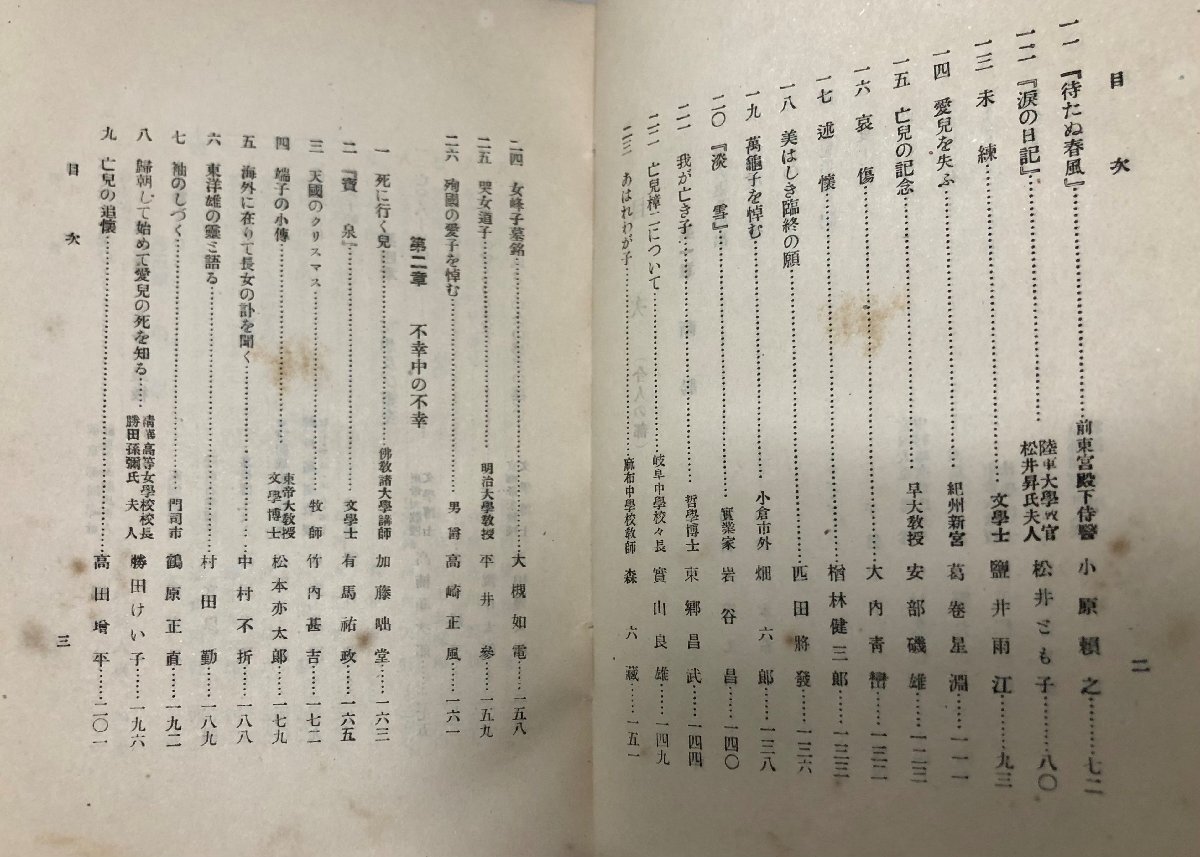 目次
二
一一 『待たぬ春風』……前東宮殿下侍醫 小原頼之……七二
一二 『涙の日記』……陸軍大學教官松井昇氏夫人 松井とも子……八〇
一三 未練……文學士 鹽井雨江……九三
一四 愛兒を失ふ……紀州新宮 葛卷星淵……一一一
一五 亡兒の記念……早大教授 安部磯雄……一二三
一六 哀傷……大內靑巒……一三二
一七 述懷……楢林健三郎……一三三
一八 美はしき臨終の願……匹田將發……一三六
一九 萬龜子を悼む……小倉市外 畑六郎……一三八
二〇 『淡雪』……實業家 岩谷昌……一四〇
二一 我が亡き子……哲學博士 東郷昌武……一四四
二二 亡兒樟二について……岐阜中學校々長 實山良雄……一四九
二三 あはれわが子……麻布中學校敎師 森六藏……一五一
二四 女峰子墓銘……大槻如電……一五八
二五 哭女道子……明治大學敎授 平井參……一五九
二六 殉國の愛子を悼む……男爵 高崎正風……一六一
第二章 不幸中の不幸
一 死に行く兒……佛敎諸大學講師 加藤咄堂……一六三
二 『寶泉』……文學士 有馬祐政……一六五
三 天國のクリスマス……牧師 竹內甚吉……一七二
四 端子の小傳……東帝大敎授文學博士 松本亦太郞……一七九
五 海外に在りて長女の訃を聞く……中村不折……一八八
六 東洋雄の靈と語る……村田勤……一八九
七 袖のしづく……門司市 鶴原正直……一九二
八 歸朝して始めて愛兒の死を知る……淸華高等女學校校長勝田孫彌氏夫人 勝田けい子……一九六
九 亡兒の追懷……高田增平……二〇一
目次
三